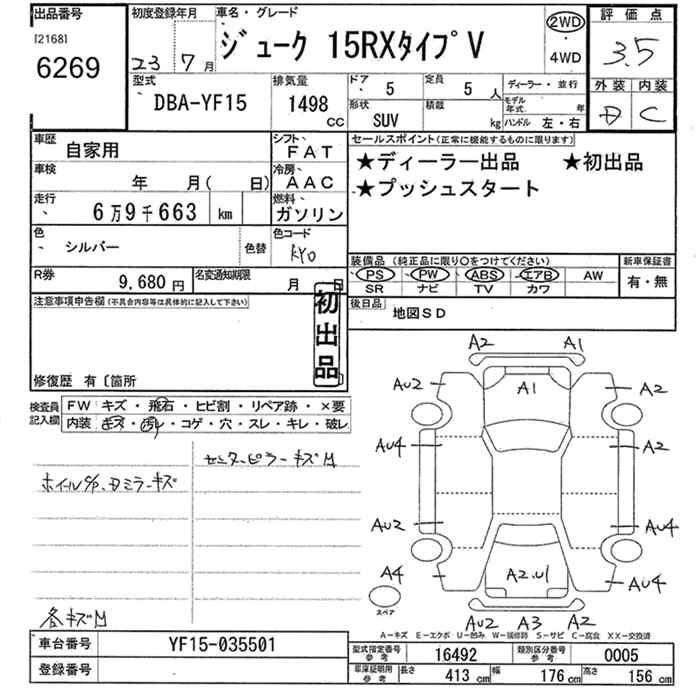 出品番号
[2168]
6269
初度登録年月
23 7 月
車名・グレード
ジューク 15RXタイプV
2WD
・
4WD
評価点
3.5
外装 内装
D C
型式
DBA-YF15
排気量
1498
cc
ドア
5
形状
SUV
定員
5 人
積載
kg
ディーラー・並行
モデル年式 年
ハンドル 左・右
車歴
自家用
シフト
FAT
車検
年 月( 日)
冷房
AAC
走行
6万9千663 km
燃料
ガソリン
色
シルバー
色替
色コード
KY0
R券
9,680 円
名変通知期限
月 日
セールスポイント(正常に機能するものに限ります)
★ディーラー出品 ★初出品
★プッシュスタート
装備品(純正品に限り○をつけてください)
PS PW ABS エアB AW
SR ナビ TV カワ
新車保証書
有・無
後日品
地図SD
注意事項申告欄(不具合内容等は具体的に記入して下さい)
初出品
修復歴 有〔箇所
検査員記入欄
FW キズ・飛石・ヒビ割・リペア跡・×要
内装 キズ・汚レ・コゲ・穴・スレ・キレ・破レ
センターピラーキズM
ホイールC/P、Dミラーキズ
各キズM
A2 A1
AU2 A1 A2
AU4 A2
AU2 AU4
A4 A2.U1 AU4
スペア
AU2 A3 A2
A-キズ E-エクボ U-凹み W-補修跡 S-サビ C-腐食 XX-交換済
車台番号
YF15-035501
登録番号
型式指定番号
参考
16492
類別区分番号
参考
0005
車庫証明用
参考
長さ 413 cm 幅 176 cm 高さ 156 cm